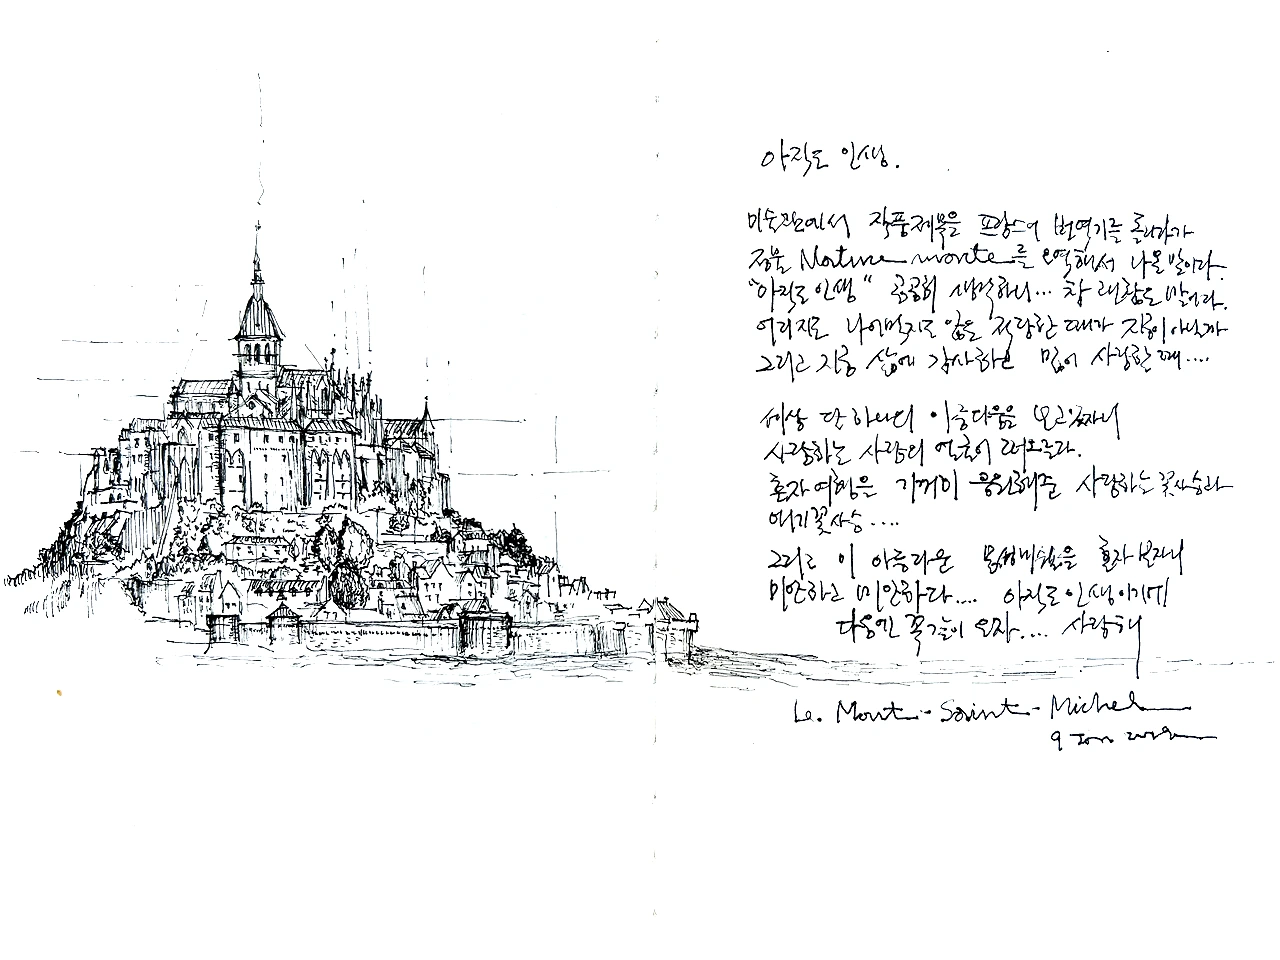 아직도 인생.
미술관에서 작품제목을 프랑스어 번역기를 돌리다가
정물 Nature morte를 오역해서 나온 말이다.
"아직도 인생" 곰곰히 생각하니... 참 괜찮은 말이다.
어리지도 나이먹지도 않은 적당한 때가 지금이 아닐까
그리고 지금 삶에 감사하고 많이 사랑할 때....
세상 단 하나의 아름다움을 보고 있자니
사랑하는 사람의 얼굴이 떠오른다.
혼자여행을 기꺼이 응원해준 사랑하는 꽃사슴과
애기꽃사슴....
그리고 이 아름다운 몽생미쉘을 혼자 보자니
미안하고 미안하다.... 아직도 인생이기에
다음엔 꼭 같이 오자.... 사랑해
Le. Mont-Saint-Michel
9 Jan